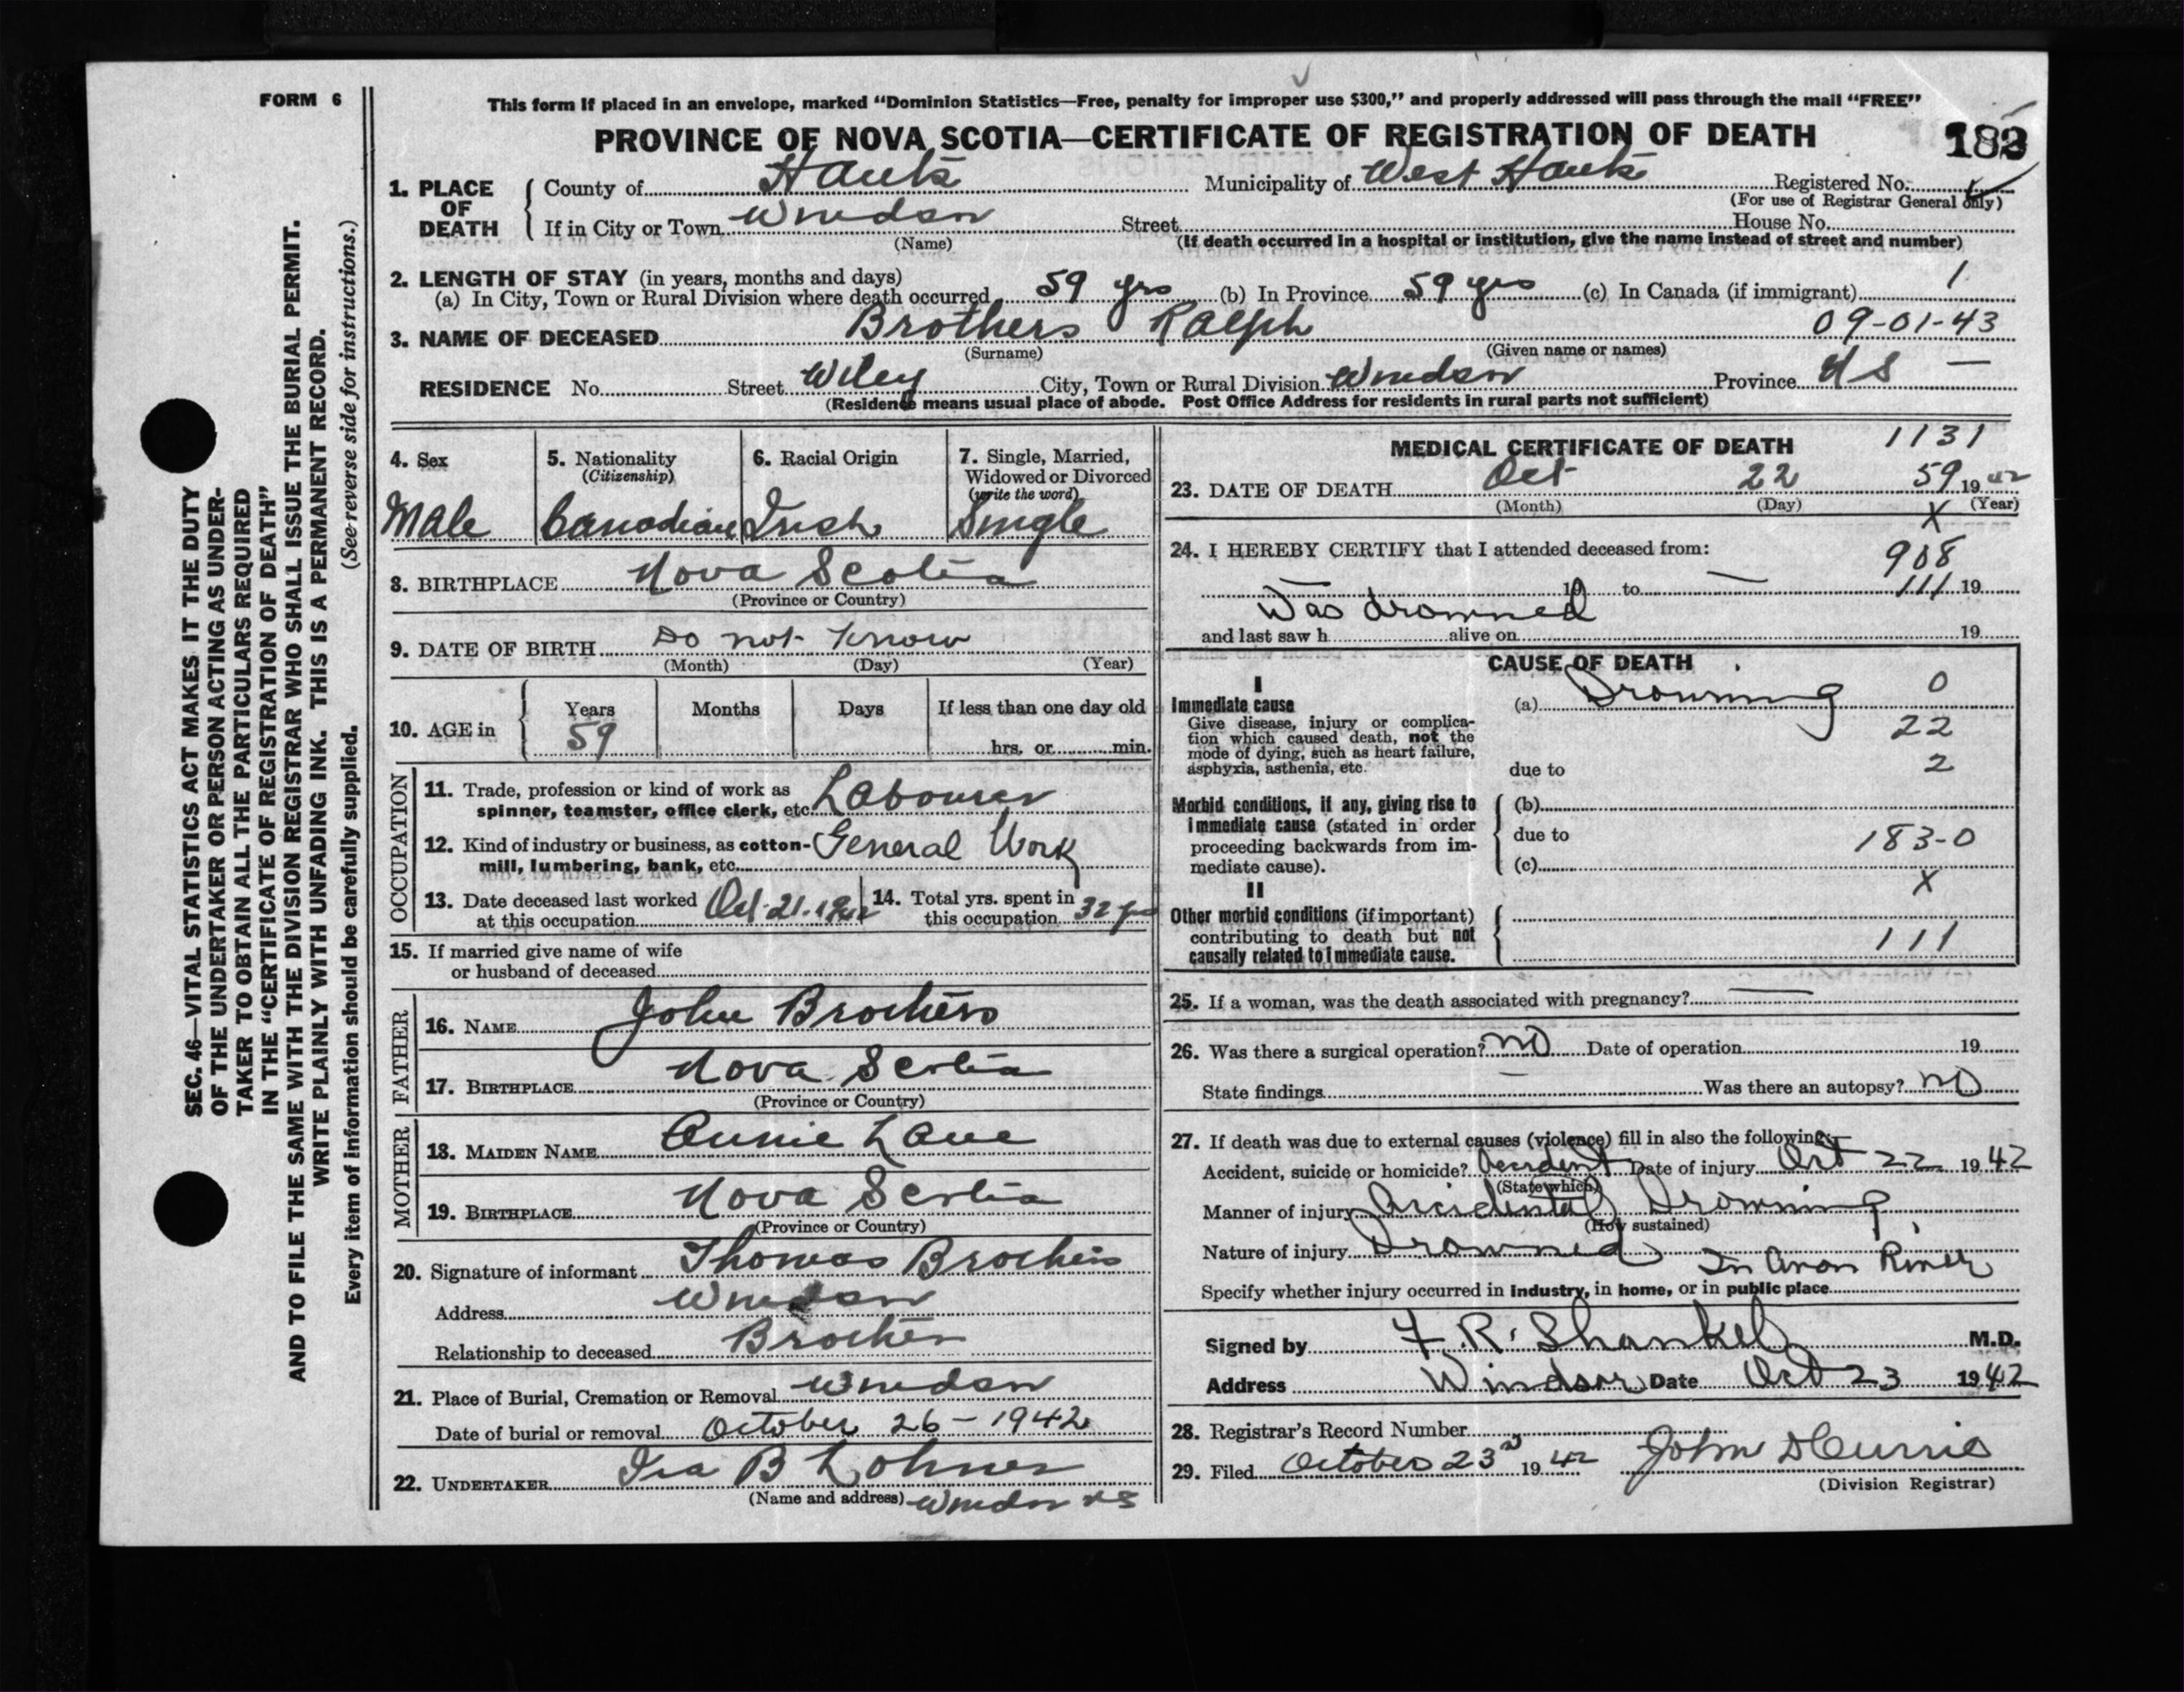 FORM 6
This form if placed in an envelope, marked "Dominion Statistics—Free, penalty for improper use $300," and properly addressed will pass through the mail "FREE"
PROVINCE OF NOVA SCOTIA—CERTIFICATE OF REGISTRATION OF DEATH
183
1. PLACE OF DEATH
County of Hants Municipality of West Hants Registered No.
(For use of Registrar General only)
If in City or Town Windsor Street House No.
(Name) (If death occurred in a hospital or institution, give the name instead of street and number)
2. LENGTH OF STAY (in years, months and days)
(a) In City, Town or Rural Division where death occurred 59 yrs (b) In Province 59 yrs (c) In Canada (if immigrant) 1
3. NAME OF DECEASED Brothers Ralph 09-01-43
(Surname) (Given name or names)
RESIDENCE No. Street Wiley City, Town or Rural Division Windsor Province N S —
(Residence means usual place of abode. Post Office Address for residents in rural parts not sufficient)
4. Sex
Male
5. Nationality
(Citizenship)
Canadian
6. Racial Origin
Irish
7. Single, Married,
Widowed or Divorced
(write the word)
Single
8. BIRTHPLACE Nova Scotia
(Province or Country)
9. DATE OF BIRTH Do not Know
(Month) (Day) (Year)
10. AGE in
Years Months Days If less than one day old
59 hrs. or min.
OCCUPATION
11. Trade, profession or kind of work as
spinner, teamster, office clerk, etc. Labourer
12. Kind of industry or business, as cotton-
mill, lumbering, bank, etc. General Work
13. Date deceased last worked
at this occupation Oct. 21. 1942
14. Total yrs. spent in
this occupation 32 yrs
15. If married give name of wife
or husband of deceased
FATHER
16. NAME John Brothers
17. BIRTHPLACE Nova Scotia
(Province or Country)
MOTHER
18. MAIDEN NAME Annie Lane
19. BIRTHPLACE Nova Scotia
(Province or Country)
20. Signature of informant Thomas Brothers
Address Windsor
Relationship to deceased Brother
21. Place of Burial, Cremation or Removal Windsor
Date of burial or removal October 26 - 1942
22. UNDERTAKER Ira B Lohnes
(Name and address) Windsor NS
MEDICAL CERTIFICATE OF DEATH 1131
23. DATE OF DEATH Oct 22 59 19 42
(Month) (Day) (Year)
X
24. I HEREBY CERTIFY that I attended deceased from:
908
— 19 to — 111 19
Was drowned
and last saw h alive on 19
CAUSE OF DEATH
I
Immediate cause (a) Drowning 0
Give disease, injury or complica-
tion which caused death, not the 22
mode of dying, such as heart failure,
asphyxia, asthenia, etc. due to 2
Morbid conditions, if any, giving rise to (b)
immediate cause (stated in order due to
proceeding backwards from im- 183-0
mediate cause). (c)
X
II
Other morbid conditions (if important)
contributing to death but not 111
causally related to immediate cause.
25. If a woman, was the death associated with pregnancy? —
26. Was there a surgical operation? no Date of operation 19
State findings — Was there an autopsy? no
27. If death was due to external causes (violence) fill in also the following:—
Accident, suicide or homicide? Accident Date of injury Oct 22 19 42
(State which)
Manner of injury Accidental Drowning
(How sustained)
Nature of injury Drowned In Avon River
Specify whether injury occurred in industry, in home, or in public place
Signed by F. R. Shankel M.D.
Address Windsor Date Oct 23 1942
28. Registrar's Record Number
29. Filed October 23rd 19 42 John D Currie
(Division Registrar)
SEC. 46—VITAL STATISTICS ACT MAKES IT THE DUTY
OF THE UNDERTAKER OR PERSON ACTING AS UNDER-
TAKER TO OBTAIN ALL THE PARTICULARS REQUIRED
IN THE "CERTIFICATE OF REGISTRATION OF DEATH"
AND TO FILE THE SAME WITH THE DIVISION REGISTRAR WHO SHALL ISSUE THE BURIAL PERMIT.
WRITE PLAINLY WITH UNFADING INK. THIS IS A PERMANENT RECORD.
Every item of information should be carefully supplied. (See reverse side for instructions.)